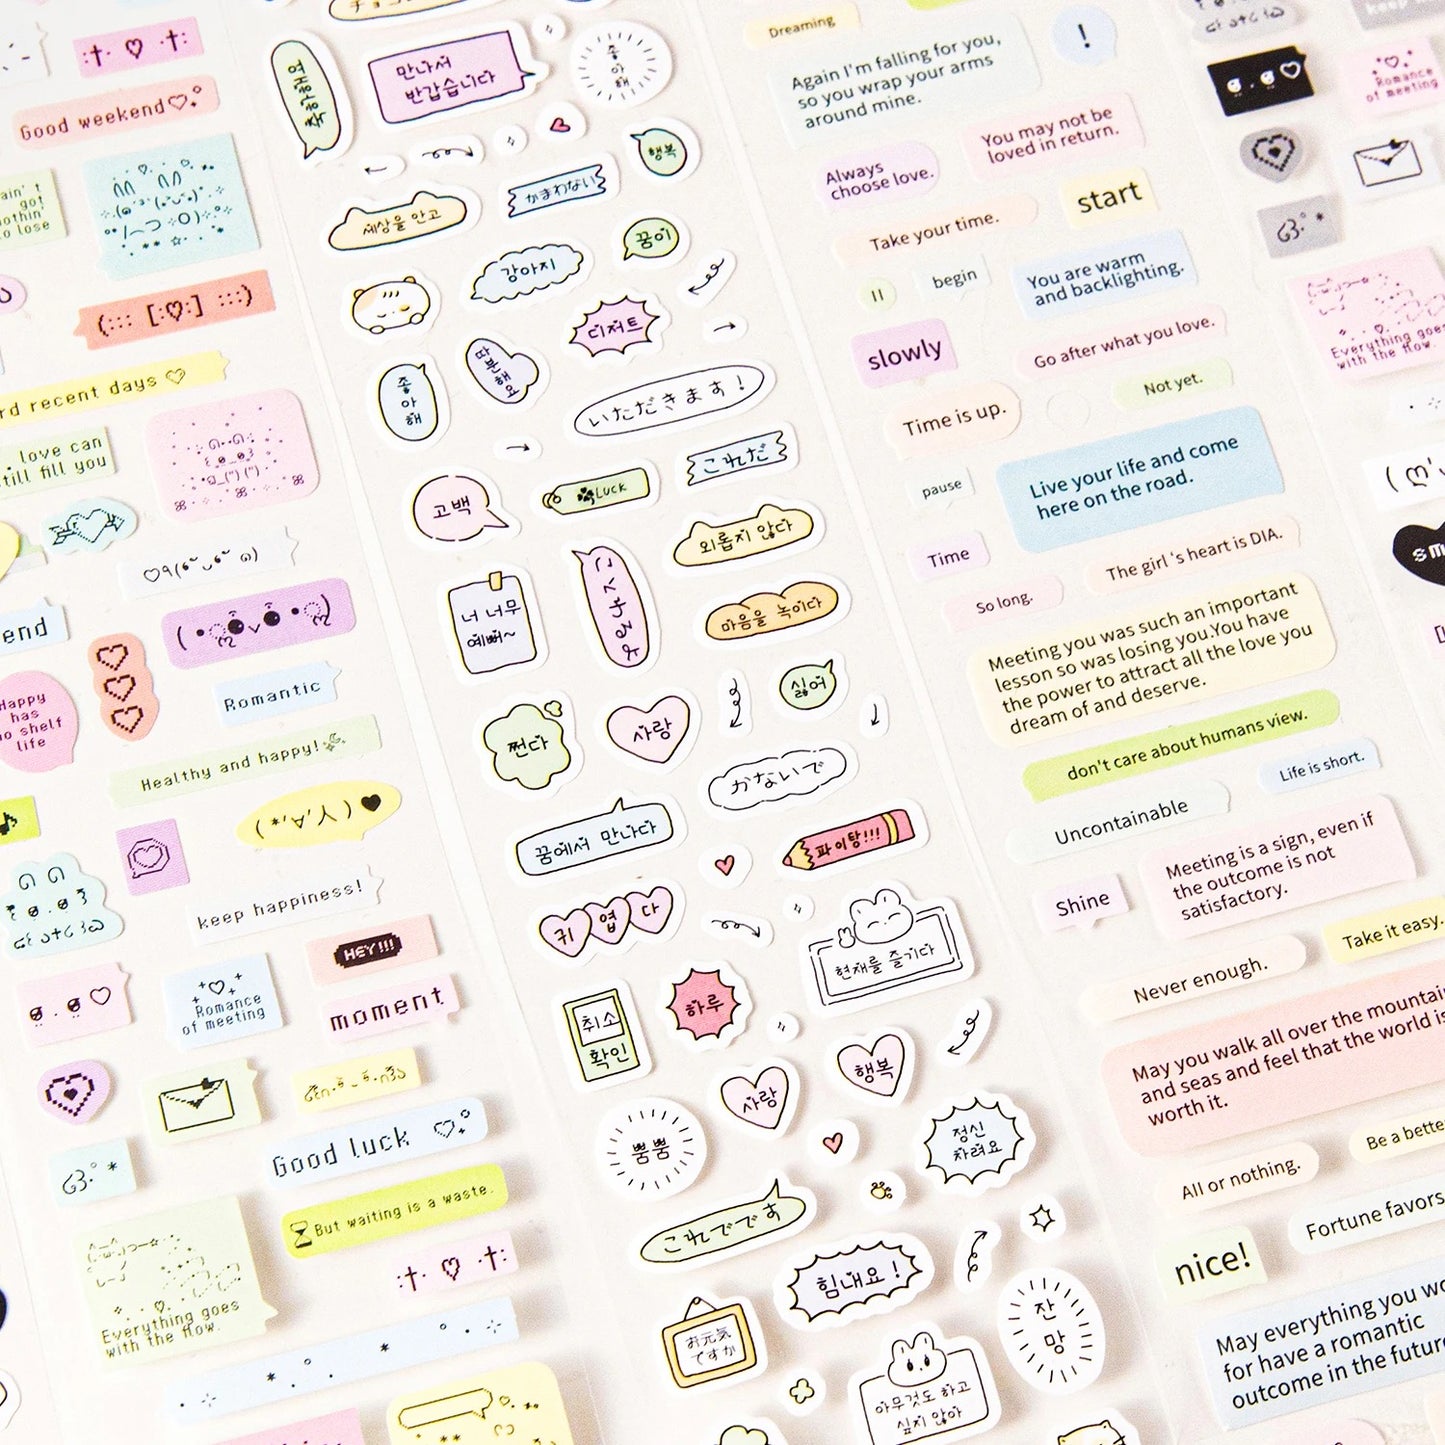 Good weekend
ain' t
got
nothin'
to lose
rd recent days
love can
still fill you
end
Romantic
Happy
has
no shelf
life
Healthy and happy!
keep happiness!
HEY!!!
Romance
of meeting
moment
Good luck
But waiting is a waste.
Everything goes
with the flow.
착한애여
만나서
반갑습니다
좋아해
행복
세상을 안고
かまわない
꿈이
강아지
디저트
따분해요
좋아해
いただきます!
これだ
고백
LUCK
외롭지 않다
너 너무
예뻐~
마음을 녹이다
싫어
쩐다
사랑
かないで
꿈에서 만나다
파이팅!!!
귀엽다
현재를 즐기다
취소
확인
하루
사랑
행복
뿜뿜
정신
차려요
これでです
힘내요!
お元気
ですか
잔망
아무것도 하고
싶지 않아
Dreaming
!
Again I'm falling for you,
so you wrap your arms
around mine.
You may not be
loved in return.
Always
choose love.
start
Take your time.
begin
You are warm
and backlighting.
slowly
Go after what you love.
Not yet.
Time is up.
pause
Live your life and come
here on the road.
Time
The girl 's heart is DIA.
So long.
Meeting you was such an important
lesson so was losing you.You have
the power to attract all the love you
dream of and deserve.
don't care about humans view.
Life is short.
Uncontainable
Meeting is a sign, even if
the outcome is not
satisfactory.
Shine
Take it easy.
Never enough.
May you walk all over the mountain
and seas and feel that the world is
worth it.
Be a bette
All or nothing.
Fortune favors
nice!
May everything you wo
for have a romantic
outcome in the future
Romance
of meeting
Everything goes
with the flow.
sm